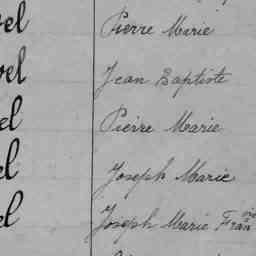 el Pierre Marie
el Jean Baptiste
el Pierre Marie
el Joseph Marie
el Joseph Marie Fran